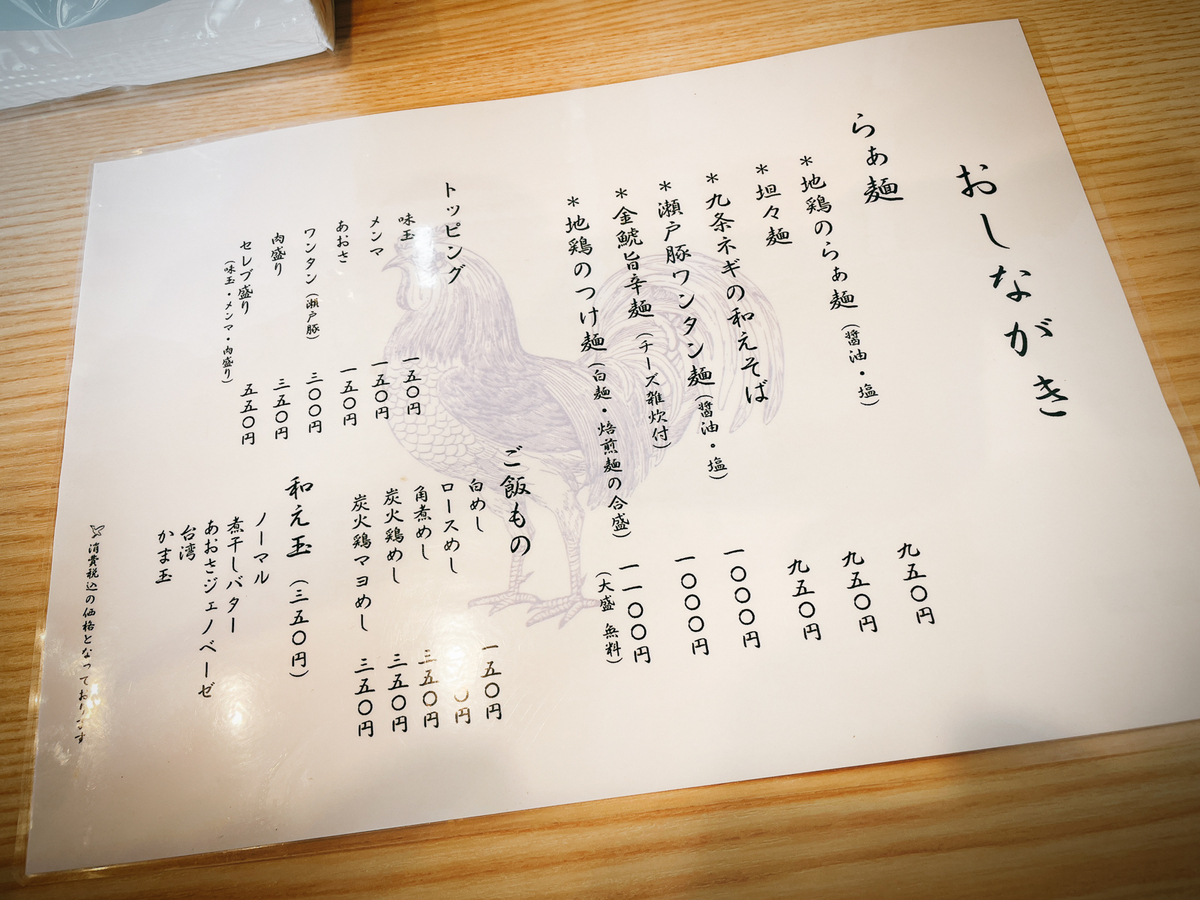 おしながき
らぁ麺
＊地鶏のらぁ麺（醤油・塩） 九五〇円
＊坦々麺 九五〇円
＊九条ネギの和えそば 九五〇円
＊瀬戸豚ワンタン麺（醤油・塩） 一〇〇〇円
＊金鯱旨辛麺（チーズ雑炊付） 一〇〇〇円
＊地鶏のつけ麺（白麺・焙煎麺の合盛） 一一〇〇円
（大盛 無料）
トッピング
味玉 一五〇円
メンマ 一五〇円
あおさ 一五〇円
ワンタン（瀬戸豚） 三〇〇円
肉盛り 三五〇円
セレブ盛り 五五〇円
（味玉・メンマ・肉盛り）
ご飯もの
白めし 一五〇円
ロースめし
角煮めし 三五〇円
炭火鶏めし 三五〇円
炭火鶏マヨめし 三五〇円
和え玉（三五〇円）
ノーマル
煮干しバター
あおさジェノベーゼ
台湾
かま玉
消費税込の価格となっております